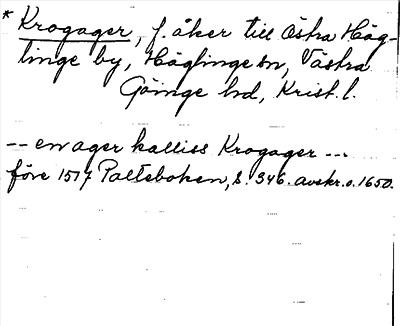 * Krogager, f. åker till Östra Hög-
linge by, Höglinge sn, Västra
Göinge hd, Krist. l.
-- en ager kalliss Krogager --.
före 1517 Palteboken, s. 346. avskr. o. 1650.